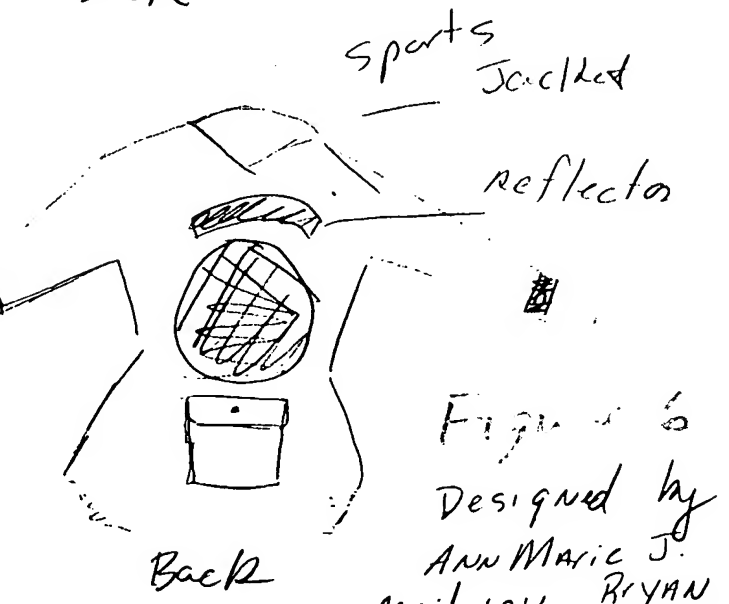 Sports
Jacket
Reflector
Figure 6
Designed by
ANN MARIE J.
BRYAN
Back